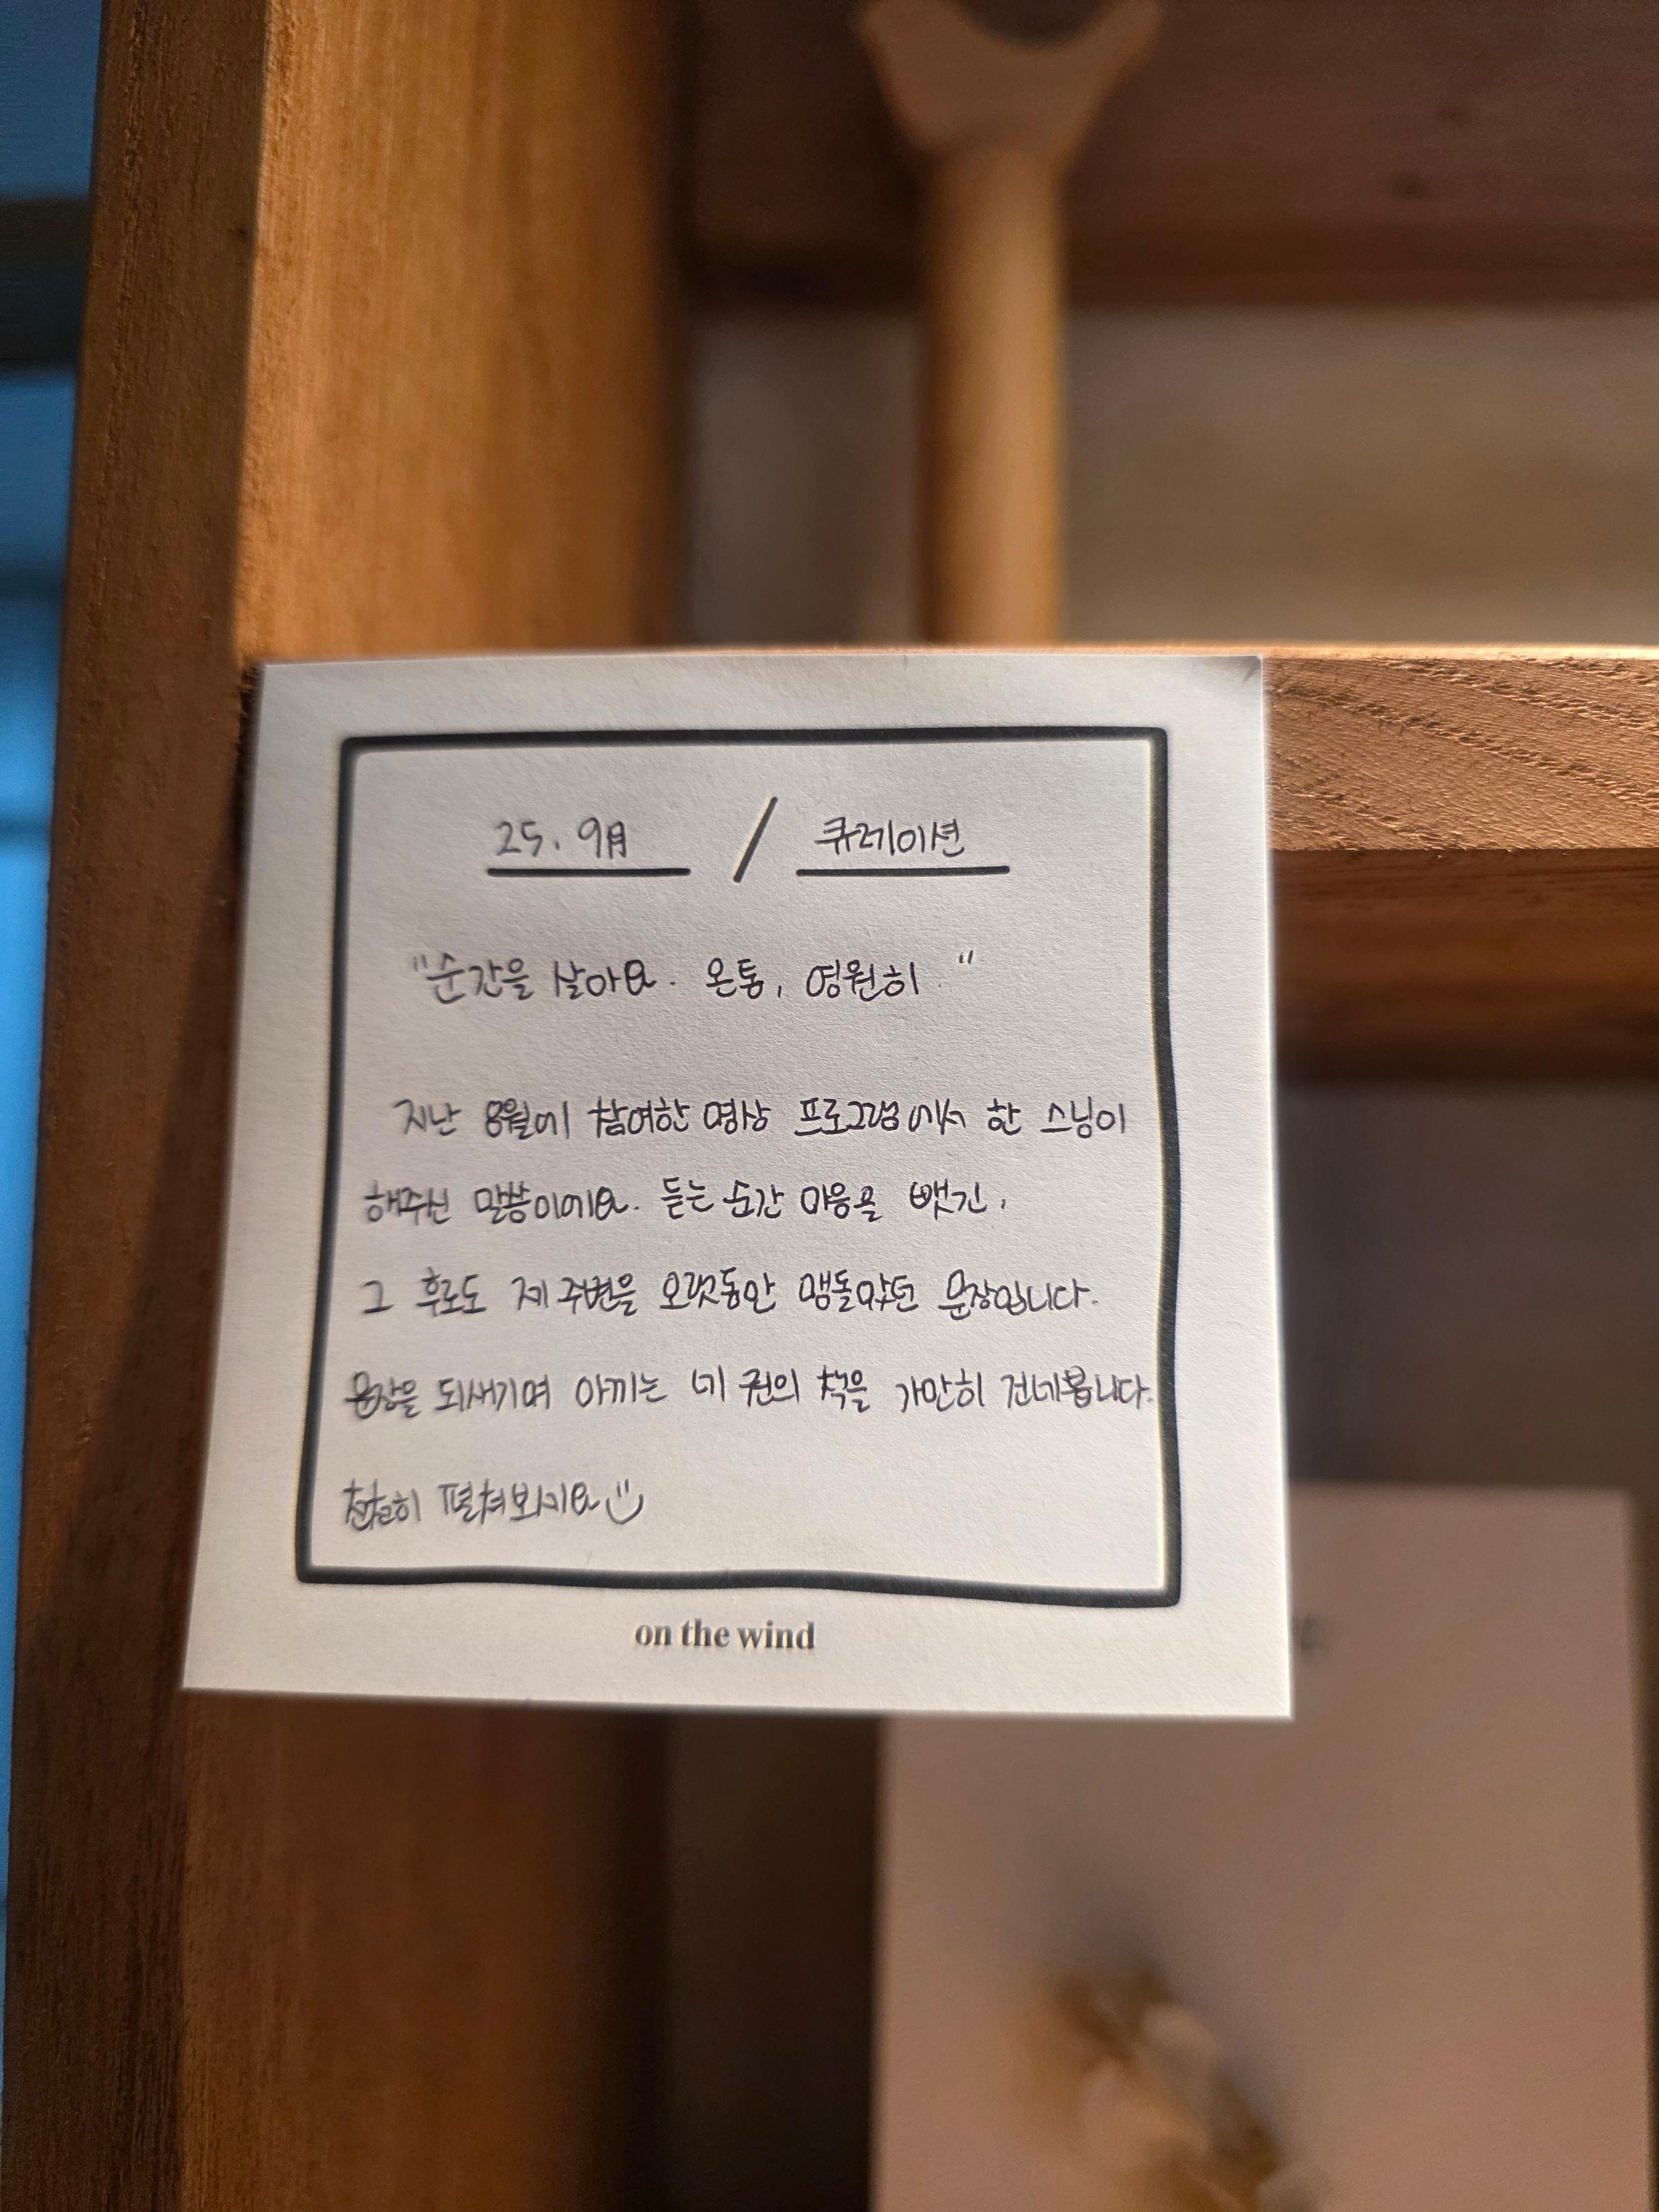 25. 9月 / 큐레이션
"순간을 살아요. 온통, 영원히."
지난 8월에 참여한 명상 프로그램에서 한 스님이
해주신 말씀이에요. 듣는 순간 마음을 뺏긴,
그 후로도 제 주변을 오랫동안 맴돌았던 문장입니다.
문장을 되새기며 아끼는 네 권의 책을 가만히 건네봅니다.
천천히 펼쳐보세요
on the wind